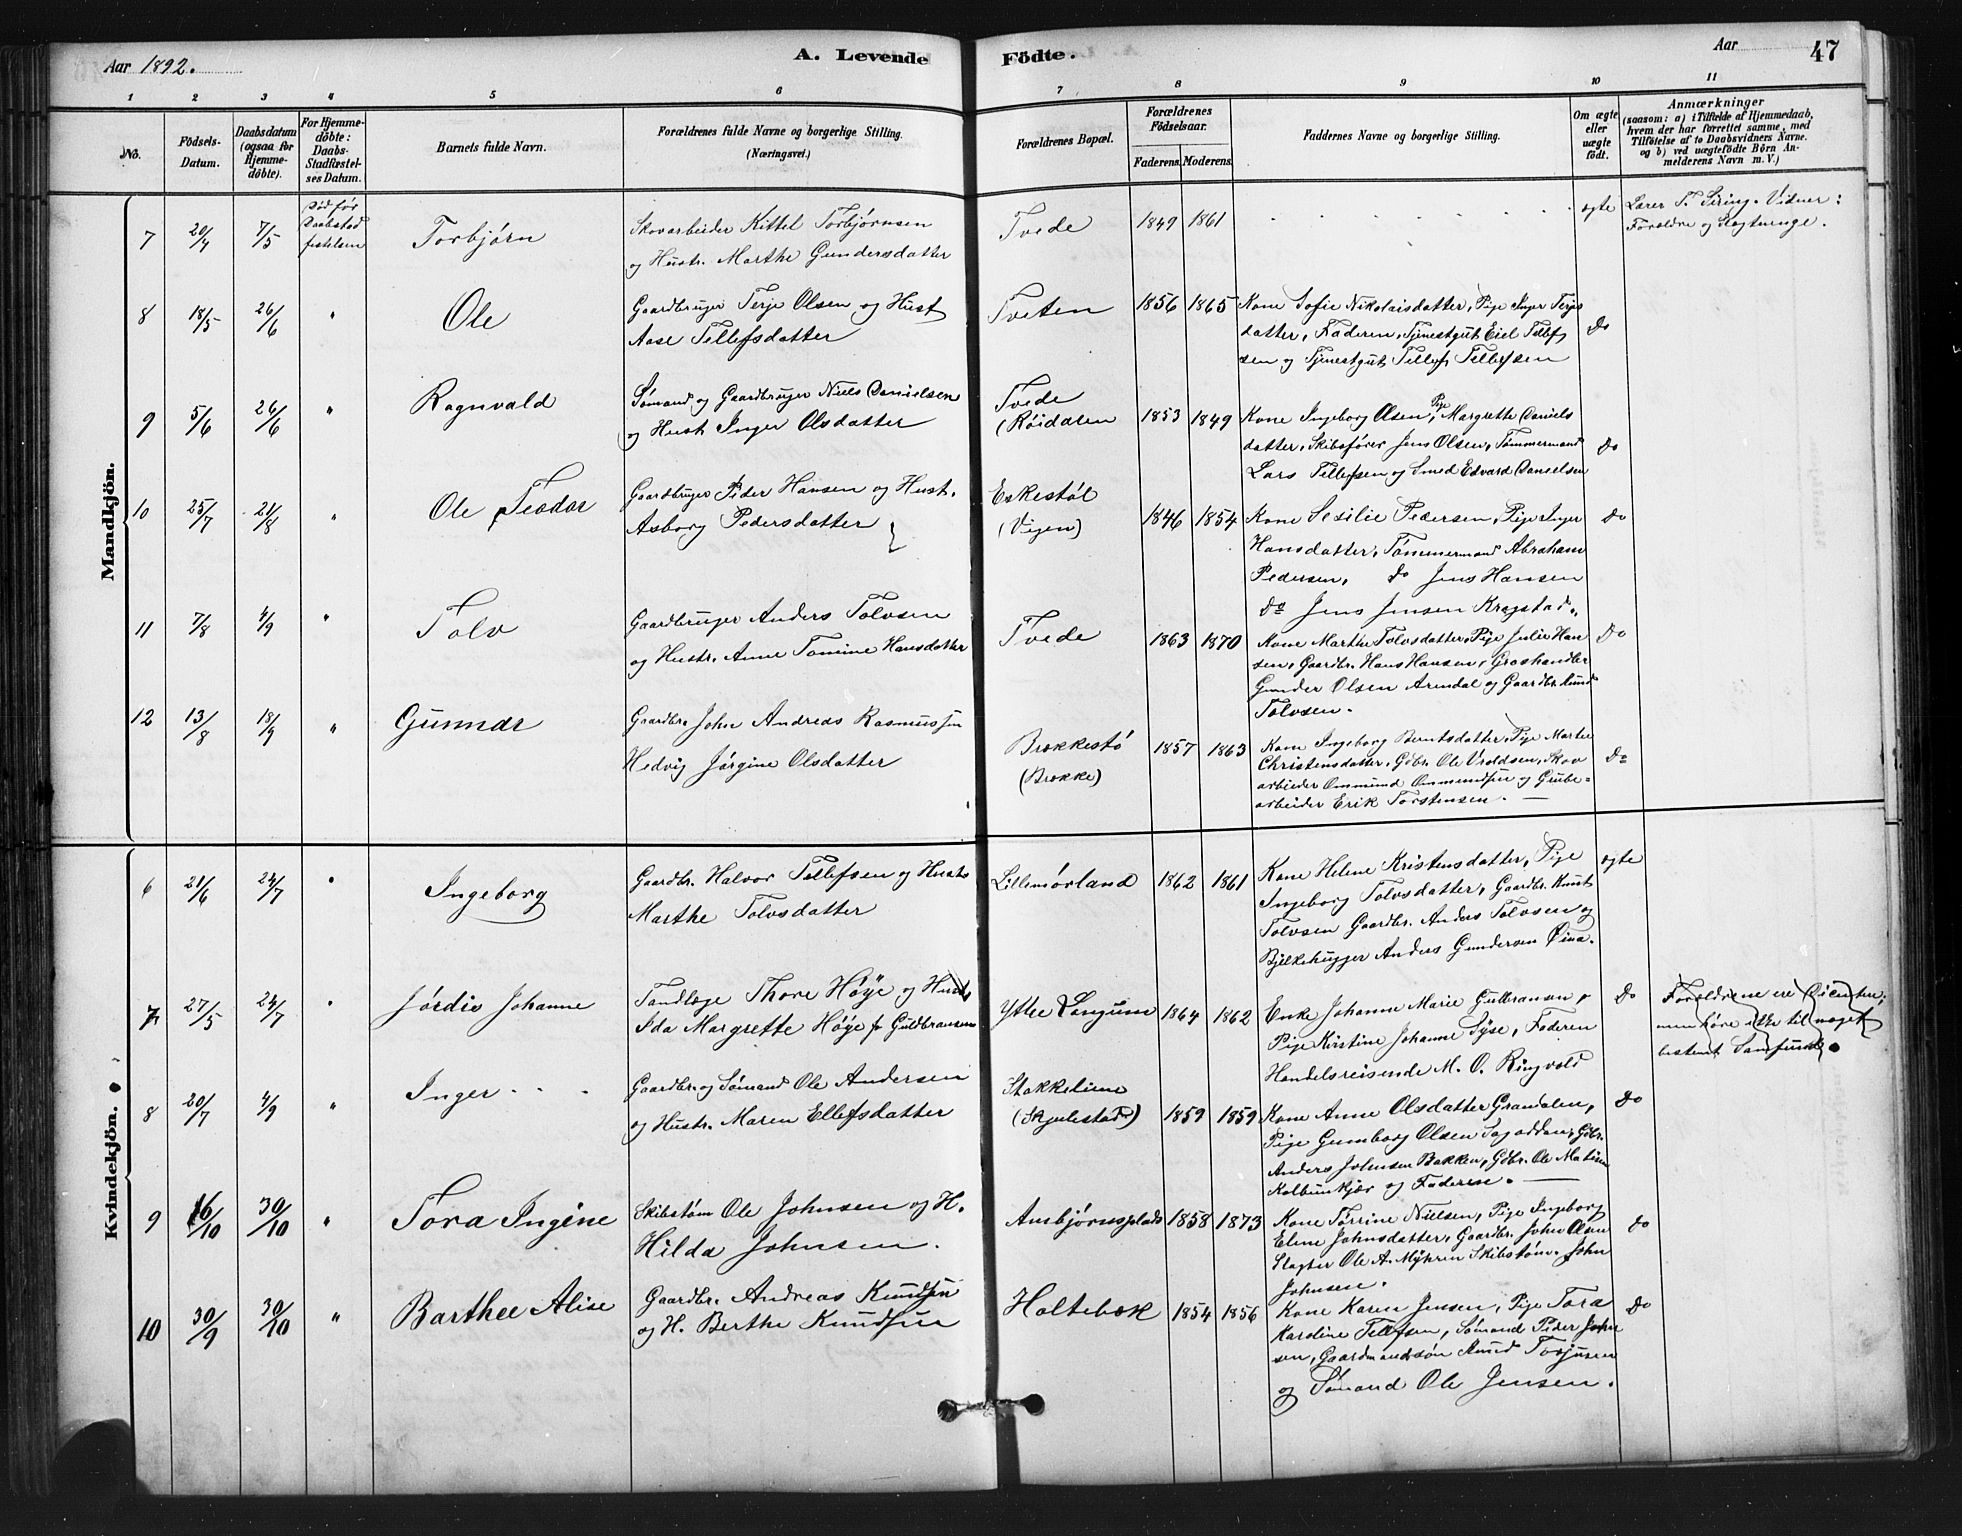 Aar 1892.
A. Levende Födte.
Aar
47
1 2 3 4 5 6 7 8 9 10 11
No.
Födsels-
Datum.
Daabsdatum
(ogsaa for
Hjemme-
döbte).
For Hjemme-
döbte:
Daabs-
Stadfæstel-
ses Datum.
Barnets fulde Navn.
Forældrenes fulde Navne og borgerlige Stilling.
(Næringsvei.)
Forældrenes Bopæl.
Forældrenes
Födselsaar.
Faderens. Moderens.
Faddernes Navne og borgerlige Stilling.
Om ægte
eller
uægte
födt.
Anmærkninger
(saasom: a) i Tilfælde af Hjemmedaab,
hvem der har forrettet samme, med
Tilföielse af to Daabsvidners Navne.
og b) ved uægtefödte Börn An-
melderens Navn m. V.)
Mandkjön.
7 20/4 7/5
Død før
Daabstad
festelsen
Torbjørn
Skovarbeider Kittel Torbjørnsen
og Hustr. Marthe Gundersdatter
Tvede
1849 1861
ægte
Lærer T. Sering. Vidner:
Forældre og Slægtninge.
8 18/5 26/6 "
Ole
Gaardbruger Terje Olsen og Hust
Aase Tellefsdatter
Tveten
1856 1865
Kone Sofie Nikolaisdatter, Pige Inger Terjes
datter, Faderen, Tjenestgut Eiel Tellef
sen og Tjenestgut Tellef Tellefsen
Do
9 5/6 26/6 "
Ragnvald
Sømand og Gaardbruger Niels Danielsen
og Hustr Inger Olsdatter
Tvede
(Röidalen
1853 1849
Kone Ingeborg Olsen, Pige Margrethe Daniels
datter, Skibsfører Jens Olsen, Tømmermand
Lars Tellefsen og Smed Edvard Danielsen
Do
10 25/7 21/8 "
Ole Teodor
Gaardbruger Peder Hansen og Hust.
Asborg Pedersdatter
Eskestøl
(Vigen)
1846 1854
Kone Sesilie Pedersen, Pige Inger
Hansdatter, Tømmermand Abraham
Pedersen, Do Jens Hansen
Do Jens Jensen Kragstad.
Do
11 7/8 4/9 "
Tolv
Gaardbruger Anders Tolvsen
og Hustr. Anne Tomine Hansdatter
Tvede
1863 1870
Kone Marthe Tolvsdatter, Pige Julie Han
sen, Gaardbr. Hans Hansen, Groshandler
Gunder Olsen Arendal og Gaardbr. Knud
Tolvsen.
Do
12 13/8 18/9 "
Gunnar
Gaardbr. John Andreas Rasmussen
Hedvig Jørgine Olsdatter
Brækkestø
(Brække)
1857 1863
Kone Ingeborg Berntsdatter, Pige Marte
Christensdatter, Gdbr. Ole Vroldsen, Skov
arbeider Ommund Ommundsen og Grube-
arbeider Erik Torstensen.
Do
Kvindekjön.
6 21/6 24/7 "
Ingeborg
Gaardbr. Halvor Tellefsen og Hustr
Marthe Tolvsdatter
Lillemørland
1862 1861
Kone Helene Kristensdatter, Pige
Ingeborg Tolvsdatter, Gaardbr. Knut
Tolvsen Gaardbr. Anders Tolvsen og
Bjelkehugger Anders Gundersen
ægte
7 27/5 24/7 "
Jordis Johanne
Tandlæge Thore Höye og Hust
Ida Margrette Höye f. Guldbransen
Yttre Langum
1864 1862
Enke Johanne Marie Gulbransen,
Pige Kristine Johanne Syse, Faderen
Handelsreisende M. O. Ringvold
Do
Forældrene ere Dissenter,
men høre ikke til noget
bestemt Samfund.
8 20/7 4/9 "
Inger
Gaardbr. og Sømand Ole Andersen
og Hustr. Maren Ellefsdatter
Stakkeliene
(Skjulestad)
1859 1859
Kone Anne Olsdatter Grandalen,
Pige Gumborg Olsen Sagodden, Gdbr.
Anders Johnsen Bakken, Gdbr. Ole
Kolbunkjær og Faderen.
Do
9 16/10 30/10 "
Tora Ingine
Skibstøm Ole Johnsen og H.
Hilda Johnsen.
Ambjørnsplads
1858 1873
Kone Torrine Nielsen, Pige Ingeborg
Eline Johnsdatter, Gaardbr. John Olsen
Slagter Ole A. Myhren Skibstøm. John
Johnsen.
Do
10 30/9 30/10 "
Barthee Alise
Gaardbr. Andreas Knudsen
og H. Berthe Knudsen
Holtebæk
1854 1856
Kone Karen Jensen, Pige Tora
Karoline Tellefsen, Sømand Peder John
sen, Gaardmandssøn Knud Torjusen
og Sømand Ole Jensen.
Do